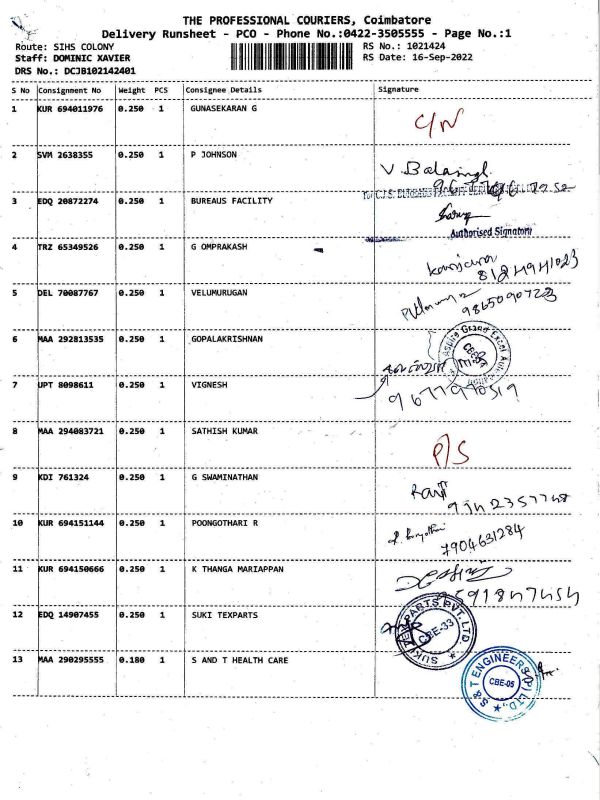 THE PROFESSIONAL COURIERS, Coimbatore
Delivery Runsheet - PCO - Phone No.:0422-3505555 - Page No.:1
Route: SIHS COLONY
RS No.: 1021424
Staff: DOMINIC XAVIER
RS Date: 16-Sep-2022
DRS No.: DCJB102142401
S No Consignment No Weight PCS Consignee Details Signature
1 KUR 694011976 0.250 1 GUNASEKARAN G
C/N
2 SVM 2638355 0.250 1 P JOHNSON
3 EDQ 20872274 0.250 1 BUREAUS FACILITY
Authorised Signatory
4 TRZ 65349526 0.250 1 G OMPRAKASH
8124941023
5 DEL 70087767 0.250 1 VELUMURUGAN
9865090723
6 MAA 292813535 0.250 1 GOPALAKRISHNAN
7 UPT 8098611 0.250 1 VIGNESH
8 MAA 294083721 0.250 1 SATHISH KUMAR
P/S
9 KDI 761324 0.250 1 G SWAMINATHAN
10 KUR 694151144 0.250 1 POONGOTHARI R
7904631284
11 KUR 694150666 0.250 1 K THANGA MARIAPPAN
12 EDQ 14907455 0.250 1 SUKI TEXPARTS
SUKI TEXPARTS PVT. LTD
CBE-33
13 MAA 290295555 0.180 1 S AND T HEALTH CARE
S & T ENGINEERS (P) LTD.,
CBE-05